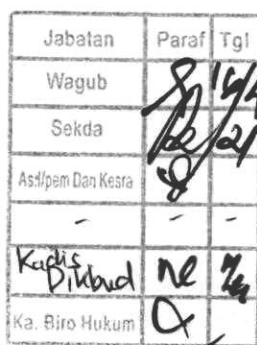 Jabatan Paraf Tgl
Wagub
Sekda
Ass.I/pem Dan Kesra
- - -
Kadis
Dikbud
Ka. Biro Hukum